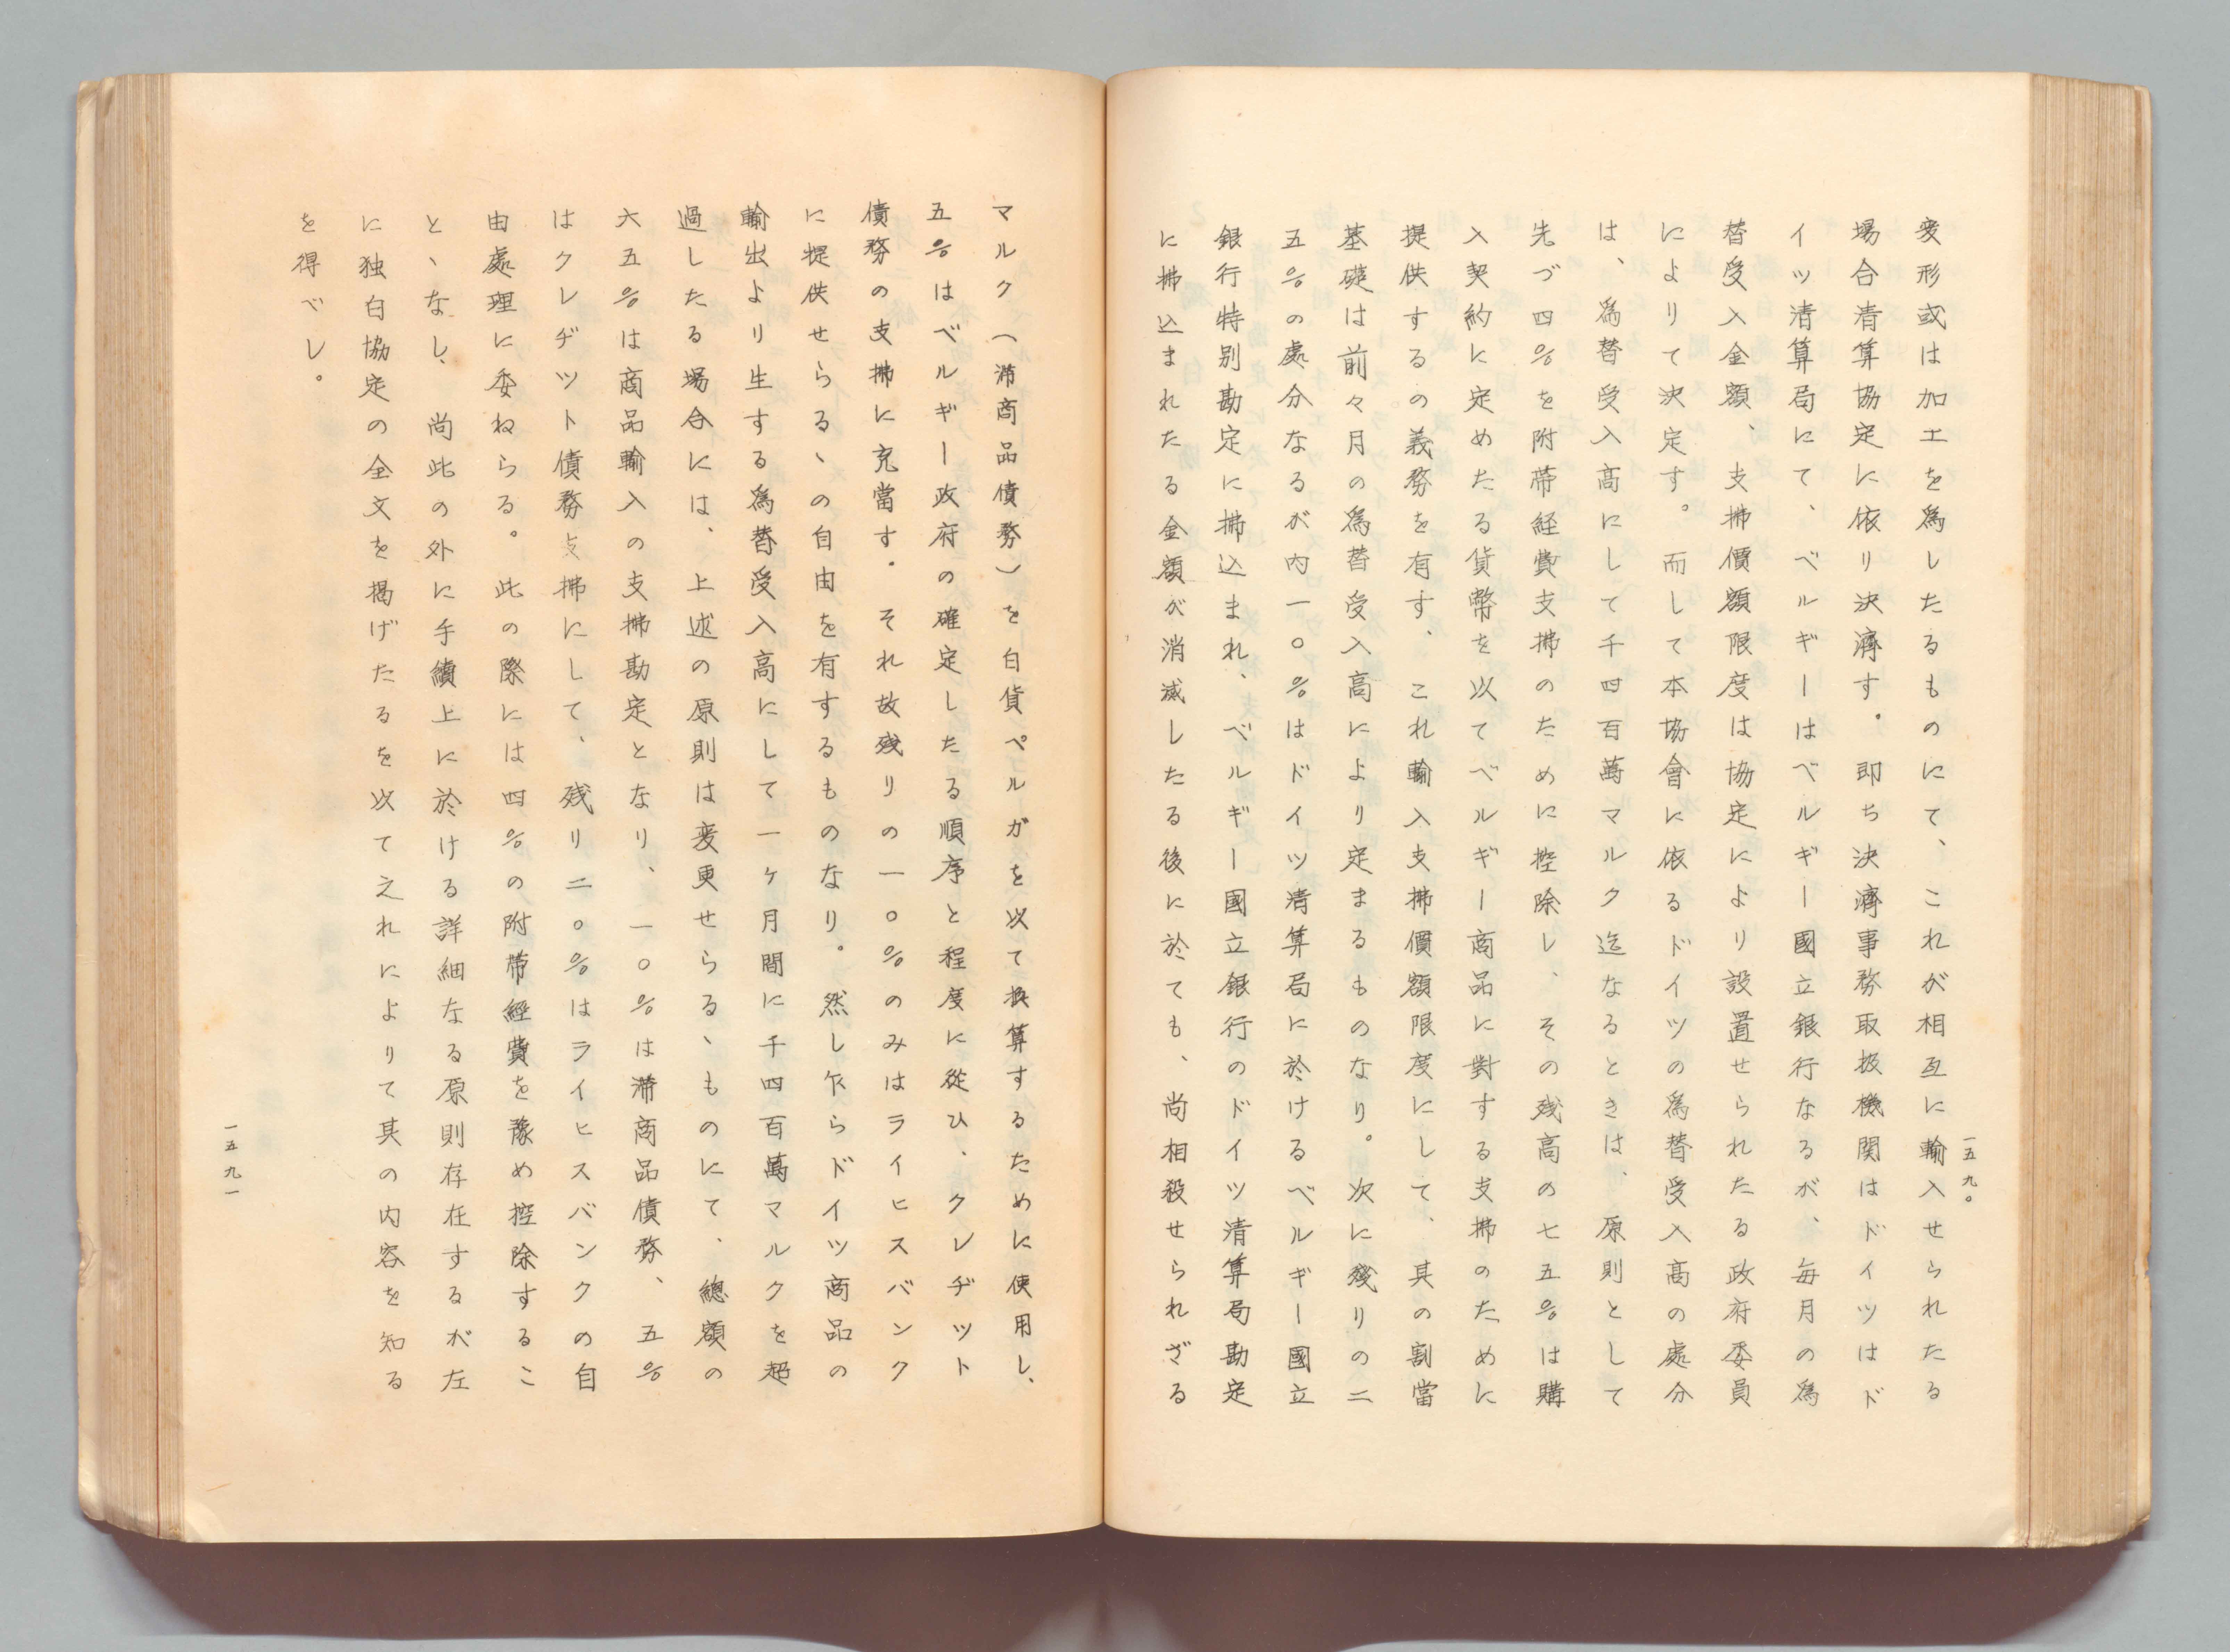 変形或は加工を為したるものにて、これが相互に輸入せられたる
場合清算協定に依り決濟す。即ち決濟事務取扱機関はドイツはド
イツ清算局にて、ベルギーはベルギー國立銀行なるが、毎月の為
替受入金額、支拂價額限度は協定により設置せられたる政府委員
によりて決定す。而して本協會に依るドイツの為替受入高の處分
は、為替受入高にして千四百萬マルク迄なるときは、原則として
先づ四%を附帯経費支拂のために控除し、その残高の七五%は購
入契約に定めたる貨幣を以てベルギー商品に對する支拂のために
提供するの義務を有す、これ輸入支拂價額限度にして、其の割當
基礎は前々月の為替受入高により定まるものなり。次に殘りの二
五%の處分なるが内一〇%はドイツ清算局に於けるベルギー國立
銀行特別勘定に拂込まれ、ベルギー國立銀行のドイツ清算局勘定
に拂込まれたる金額が消滅したる後に於ても、尚相殺せられざる
一五九〇
マルク(滞商品債務)を白貨ベルガを以て換算するために使用し、
五%はベルギー政府の確定したる順序と程度に從ひ、クレヂット
債務の支拂に充當す。それ故残りの一〇%のみはライヒスバンク
に提供せらるゝの自由を有するものなり。然し乍らドイツ商品の
輸出より生する為替受入高にして一ヶ月間に千四百萬マルクを超
過したる場合には、上述の原則は変更せらるゝものにて、總額の
六五%は商品輸入の支拂勘定となり、一〇%は滞商品債務、五%
はクレヂツト債務支拂にして、残り二〇%はライヒスバンクの自
由處理に委ねらる。此の際には四%の附帯經費を豫め控除するこ
とゝなし、尚此の外に手續上に於ける詳細なる原則存在するが左
に独白協定の全文を掲げたるを以て之れによりて其の内容を知る
を得べし。
一五九一